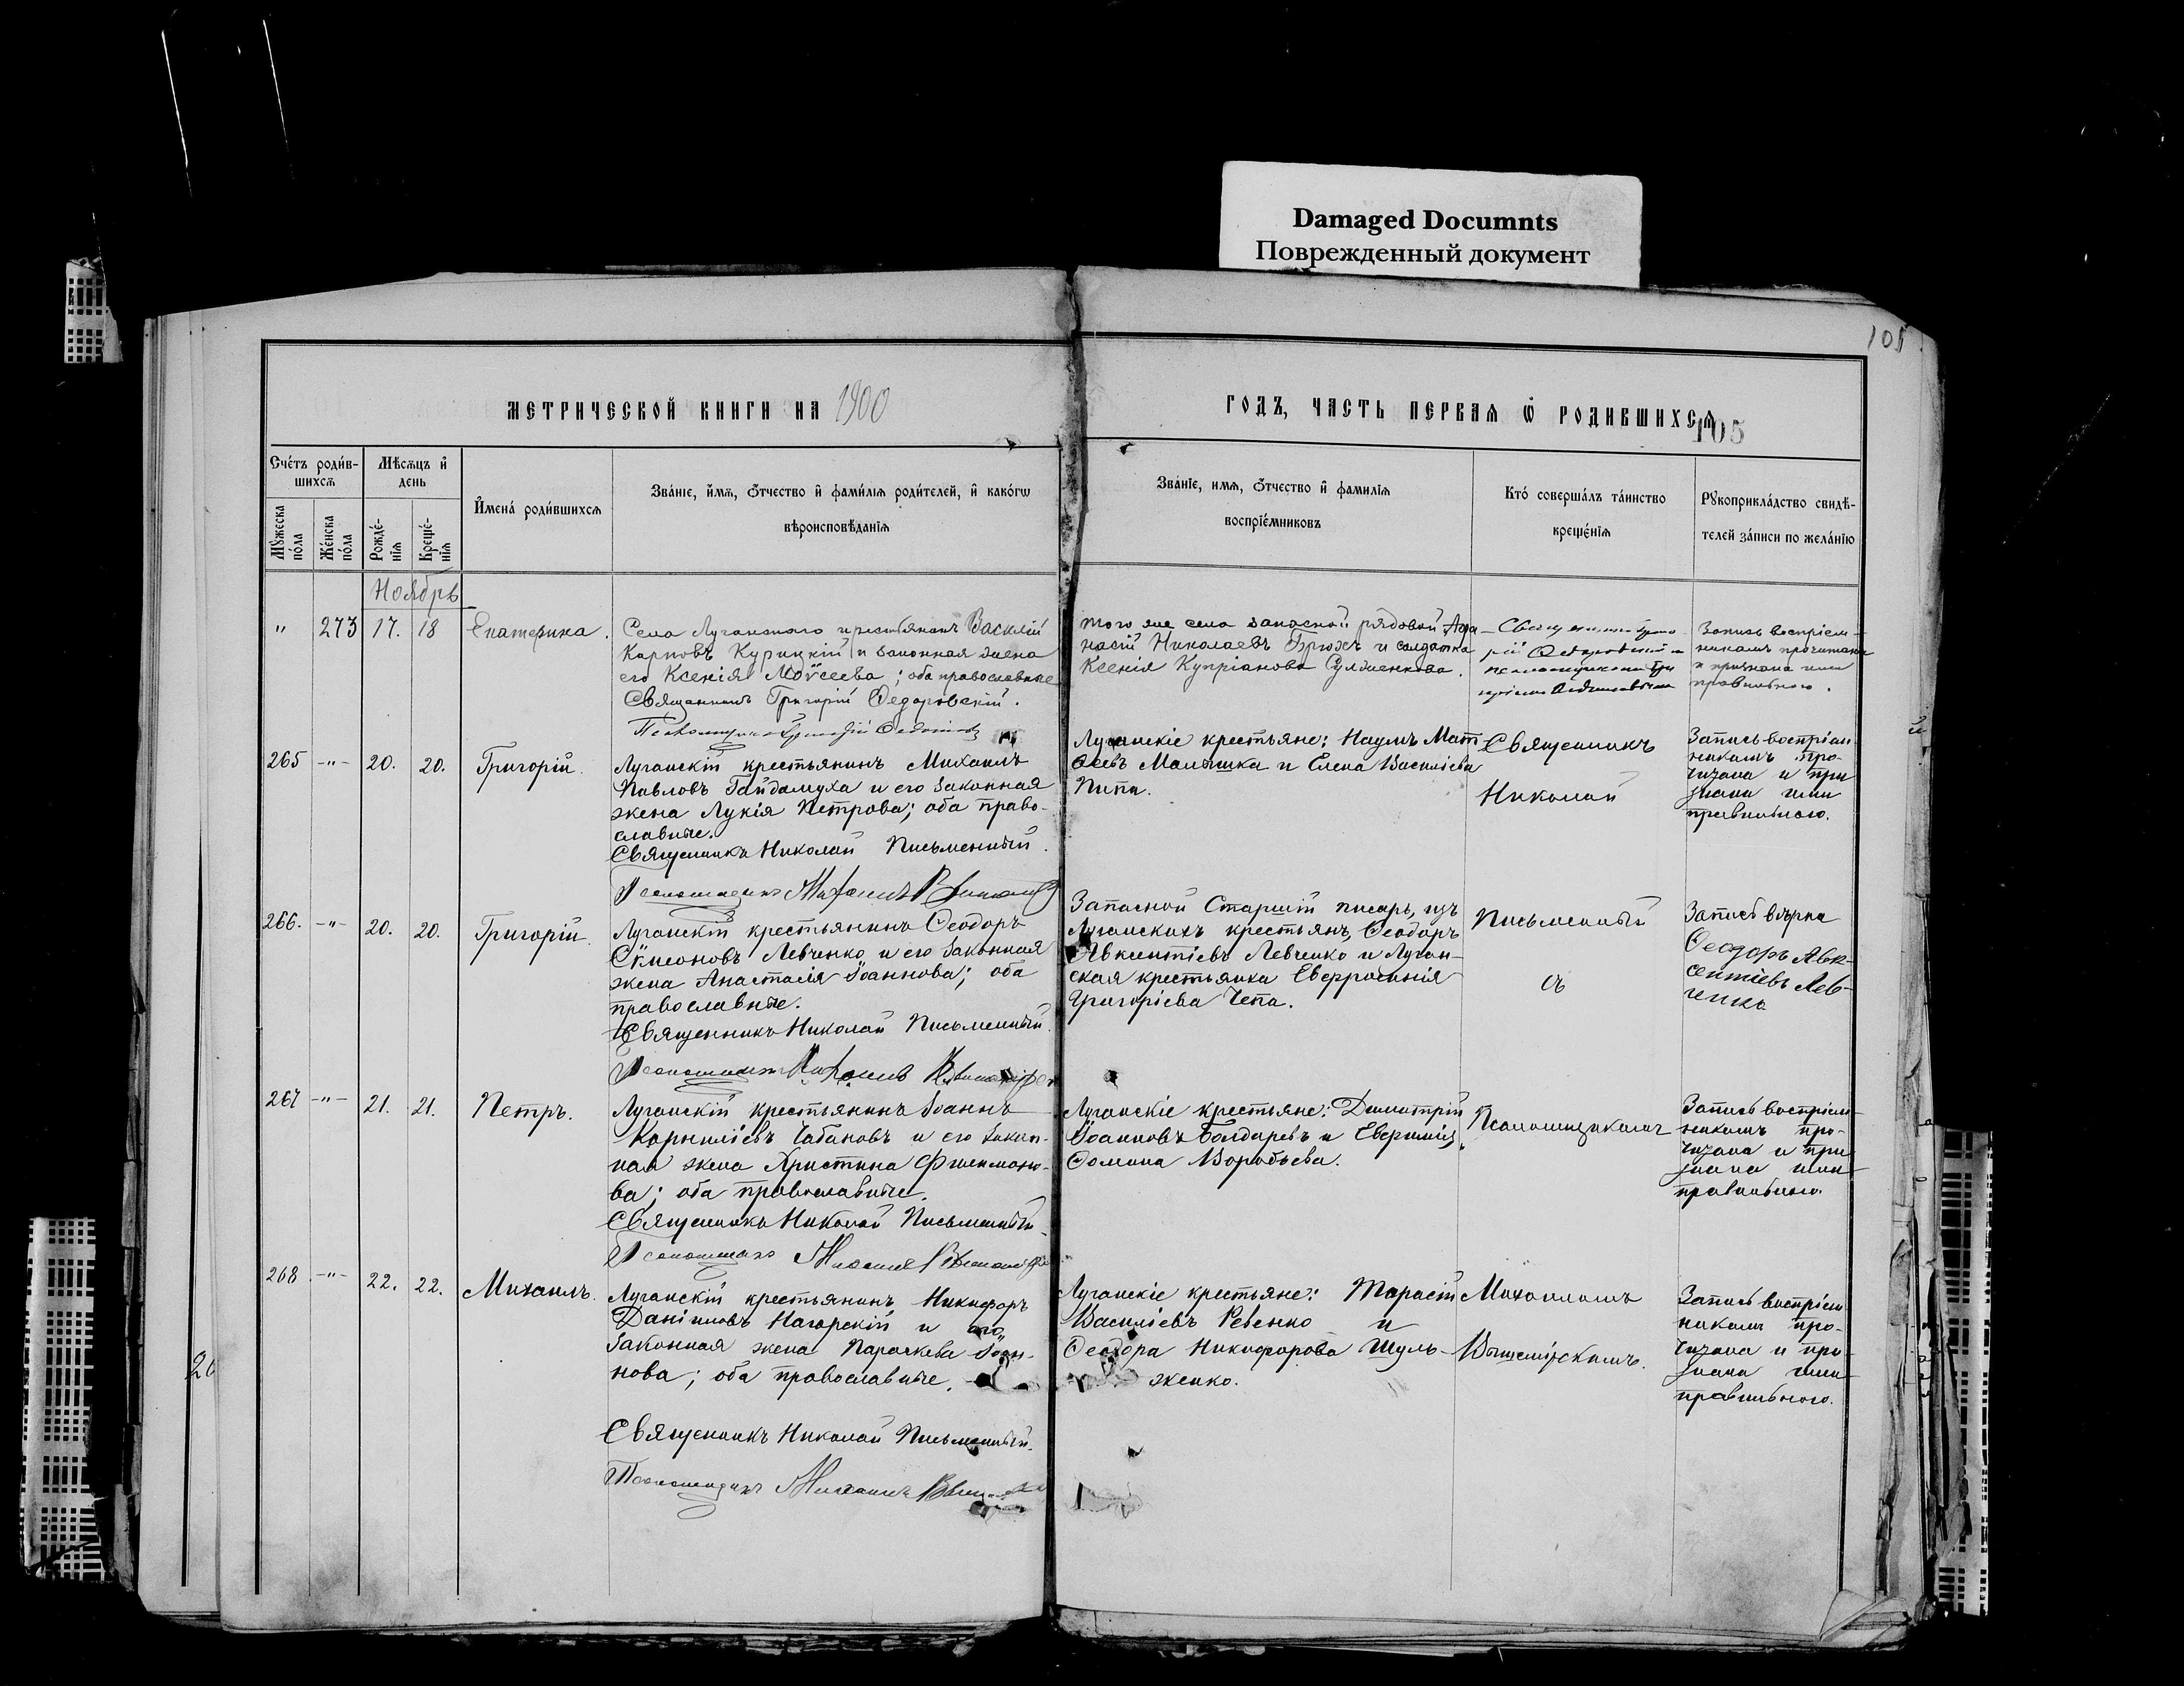 Damaged Documnts
Поврежденный документ
105
МЕТРИЧЕСКОЙ КНИГИ НА 1900
ГОДЪ, ЧАСТЬ ПЕРВАЯ Ѽ РОДИВШИХСѦ
105
Счетъ родив-
шихсѧ
Мѣсѧцъ и
день
Мужеска
пола
Женска
пола
Рожде-
нїѧ
Креще-
нїѧ
Имена родившихсѧ
Званїе, имѧ, отчество и фамилїѧ родителей, и какогѡ
вѣроисповѣданїѧ
Званїе, имѧ, отчество и фамилїѧ
воспрїемниковъ
Кто совершалъ таинство
крещенїѧ
Рукоприкладство свидѣ-
телей записи по желанїю
Ноябрь
" 273 17. 18 Екатерина.
Села Луганскаго крестьянинъ Василій
Карповъ Курицкій и законная жена
его Ксенія Моѵсеева; оба православные
Священникъ Григорій Ѳедоровскій.
того же села запасной рядовой Афа-
насій Николаевъ Брюхъ и солдатка
Ксенія Купріанова
Запись воспріем-
никамъ прочитана
и признана ими
правильною.
265 -"- 20. 20. Григорій.
Луганскій крестьянинъ Михаилъ
Павловъ Гайдамуха и его законная
жена Лукія Петрова; оба право-
славные.
Священникъ Николай Письменный.
Псаломщикъ Михаилъ
Луганскіе крестьяне: Наумъ Мат-
ѳеевъ Малышка и Елена Василіева
Пипа.
Священникъ
Николай
Запись воспріем-
никамъ про-
читана и при-
знана ими
правильною.
266. -"- 20. 20. Григорій.
Луганскій крестьянинъ Ѳеодоръ
Сѵмеоновъ Левченко и его законная
жена Анастасія Іоаннова; оба
православные.
Священникъ Николай Письменный.
Псаломщикъ Михаилъ
Запасной Старшій писарь, изъ
Луганскихъ крестьянъ, Ѳеодоръ
Авксентіевъ Левченко и Луган-
ская крестьянка Евфросинія
Григоріева Чепа.
Письменный
съ
Запись вѣрна
Ѳеодоръ Авк-
сентіевъ Лев-
ченко
267 -"- 21. 21. Петръ.
Луганскій крестьянинъ Іоаннъ
Корниліевъ Чабановъ и его закон-
ная жена Христина Филимоно-
ва; оба православные.
Священникъ Николай Письменный.
Псаломщикъ Михаилъ
Луганскіе крестьяне: Димитрій
Іоанновъ Болдаревъ и Евфимія
Ѳомина Воробьева.
Псаломщикомъ
Запись воспріем-
никамъ про-
читана и при-
знана ими
правильною.
268 -"- 22. 22. Михаилъ.
Луганскій крестьянинъ Никифоръ
Даніиловъ Нагорскій и его
законная жена Параскева Іоан-
нова; оба православные.
Священникъ Николай Письменный.
Псаломщикъ Михаилъ
Луганскіе крестьяне: Тарасій
Василіевъ Ревенко и
Ѳеодора Никифорова Шуль-
женко.
Михаиломъ
Вышемірскимъ.
Запись воспріем-
никамъ про-
читана и при-
знана ими
правильною.